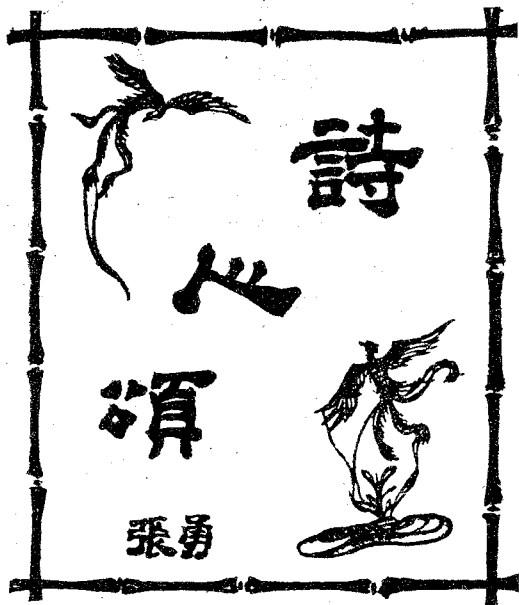 詩
心
頌
張勇